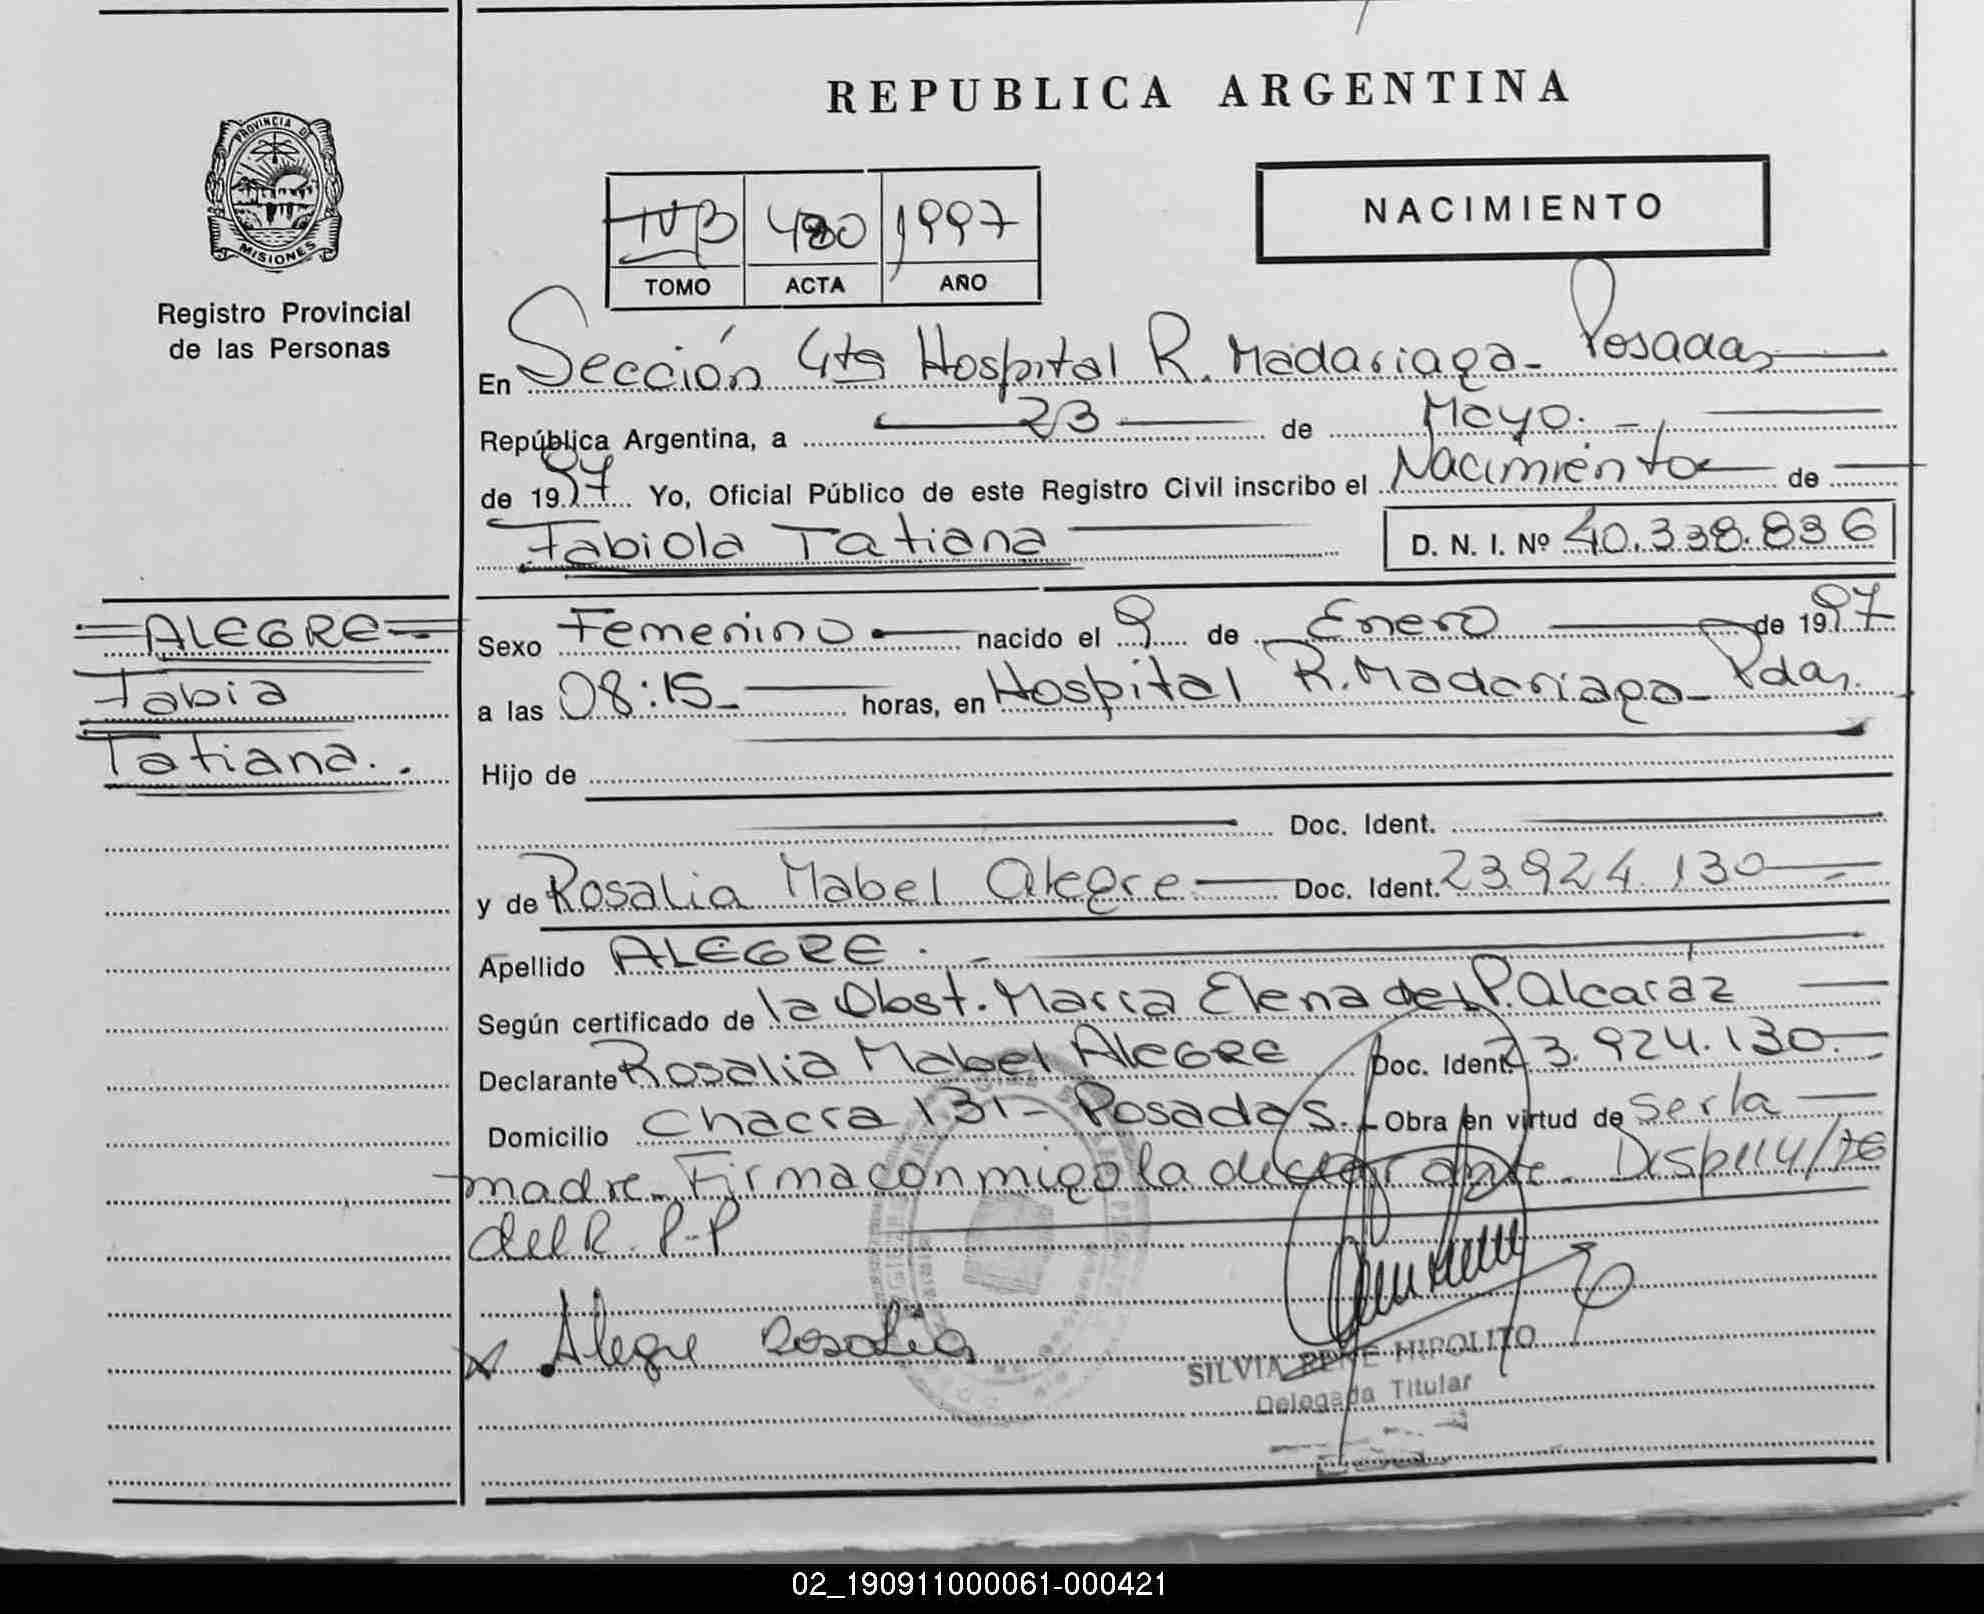 REPUBLICA ARGENTINA
PROVINCIA DE MISIONES
Registro Provincial
de las Personas
IVB 480 1997
TOMO ACTA AÑO
NACIMIENTO
En Sección 4ta Hospital R. Madariaga - Posadas
República Argentina, a 23 de Mayo
de 1997 Yo, Oficial Público de este Registro Civil inscribo el Nacimiento de
Fabiola Tatiana D. N. I. Nº 40.338.836
ALEGRE
Fabia
Tatiana.
Sexo Femenino nacido el 9 de Enero de 1997
a las 08:15 horas, en Hospital R. Madariaga - Pdas.
Hijo de
Doc. Ident.
y de Rosalia Mabel Alegre Doc. Ident. 23.924.130
Apellido ALEGRE.
Según certificado de la Obst. Maria Elena del P. Alcaraz
Declarante Rosalia Mabel ALEGRE Doc. Ident. 23.924.130.
Domicilio Chacra 131 - Posadas. Obra en virtud de ser la
madre. Firma conmigo la declarante. Disp 114/76
del R. P-P
x Alegre Rosalia
SILVIA RENE HIPOLITO
Delegada Titular
02_190911000061-000421